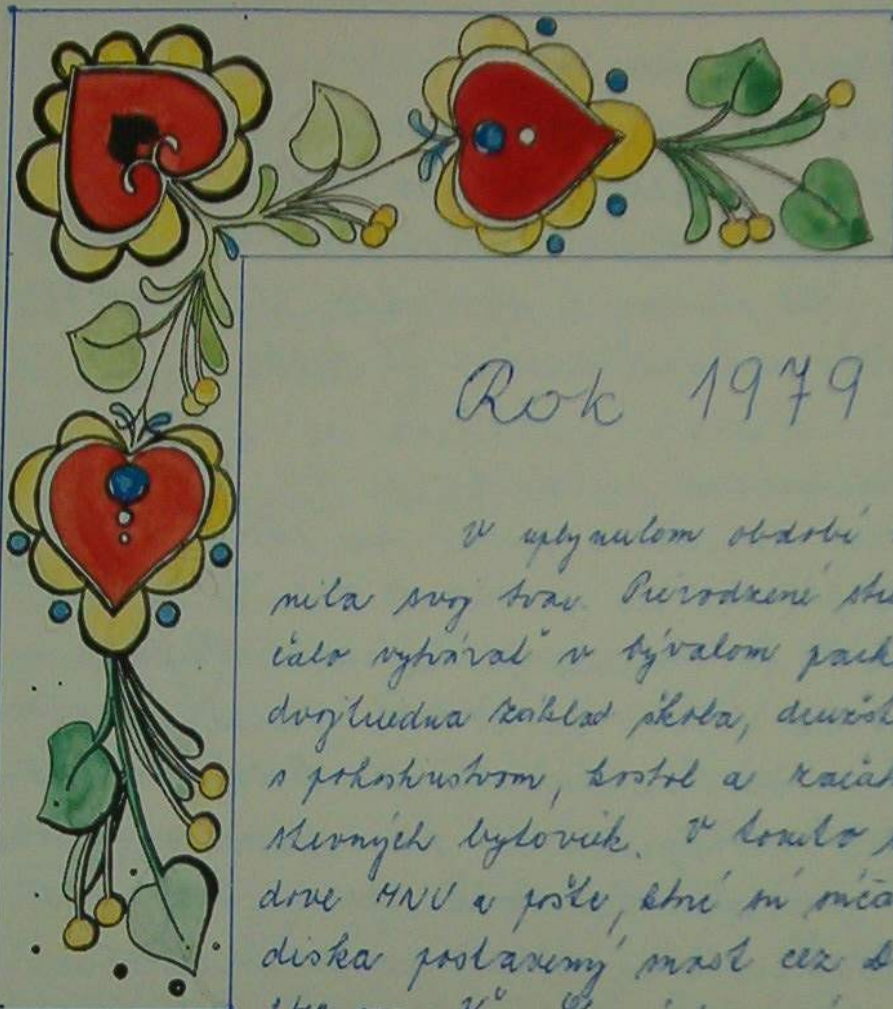 Rok 1979
V uplynulom období
nila svoj tvar. Prirodzené stre
čalo vytvárať v bývalom park
dvojtriedna základ škola, družst
s pohostinstvom, kostol a začať
stevných bytoviek. V tomto
dove MNV a pošte, ktoré sú súča
diska postavený most cez